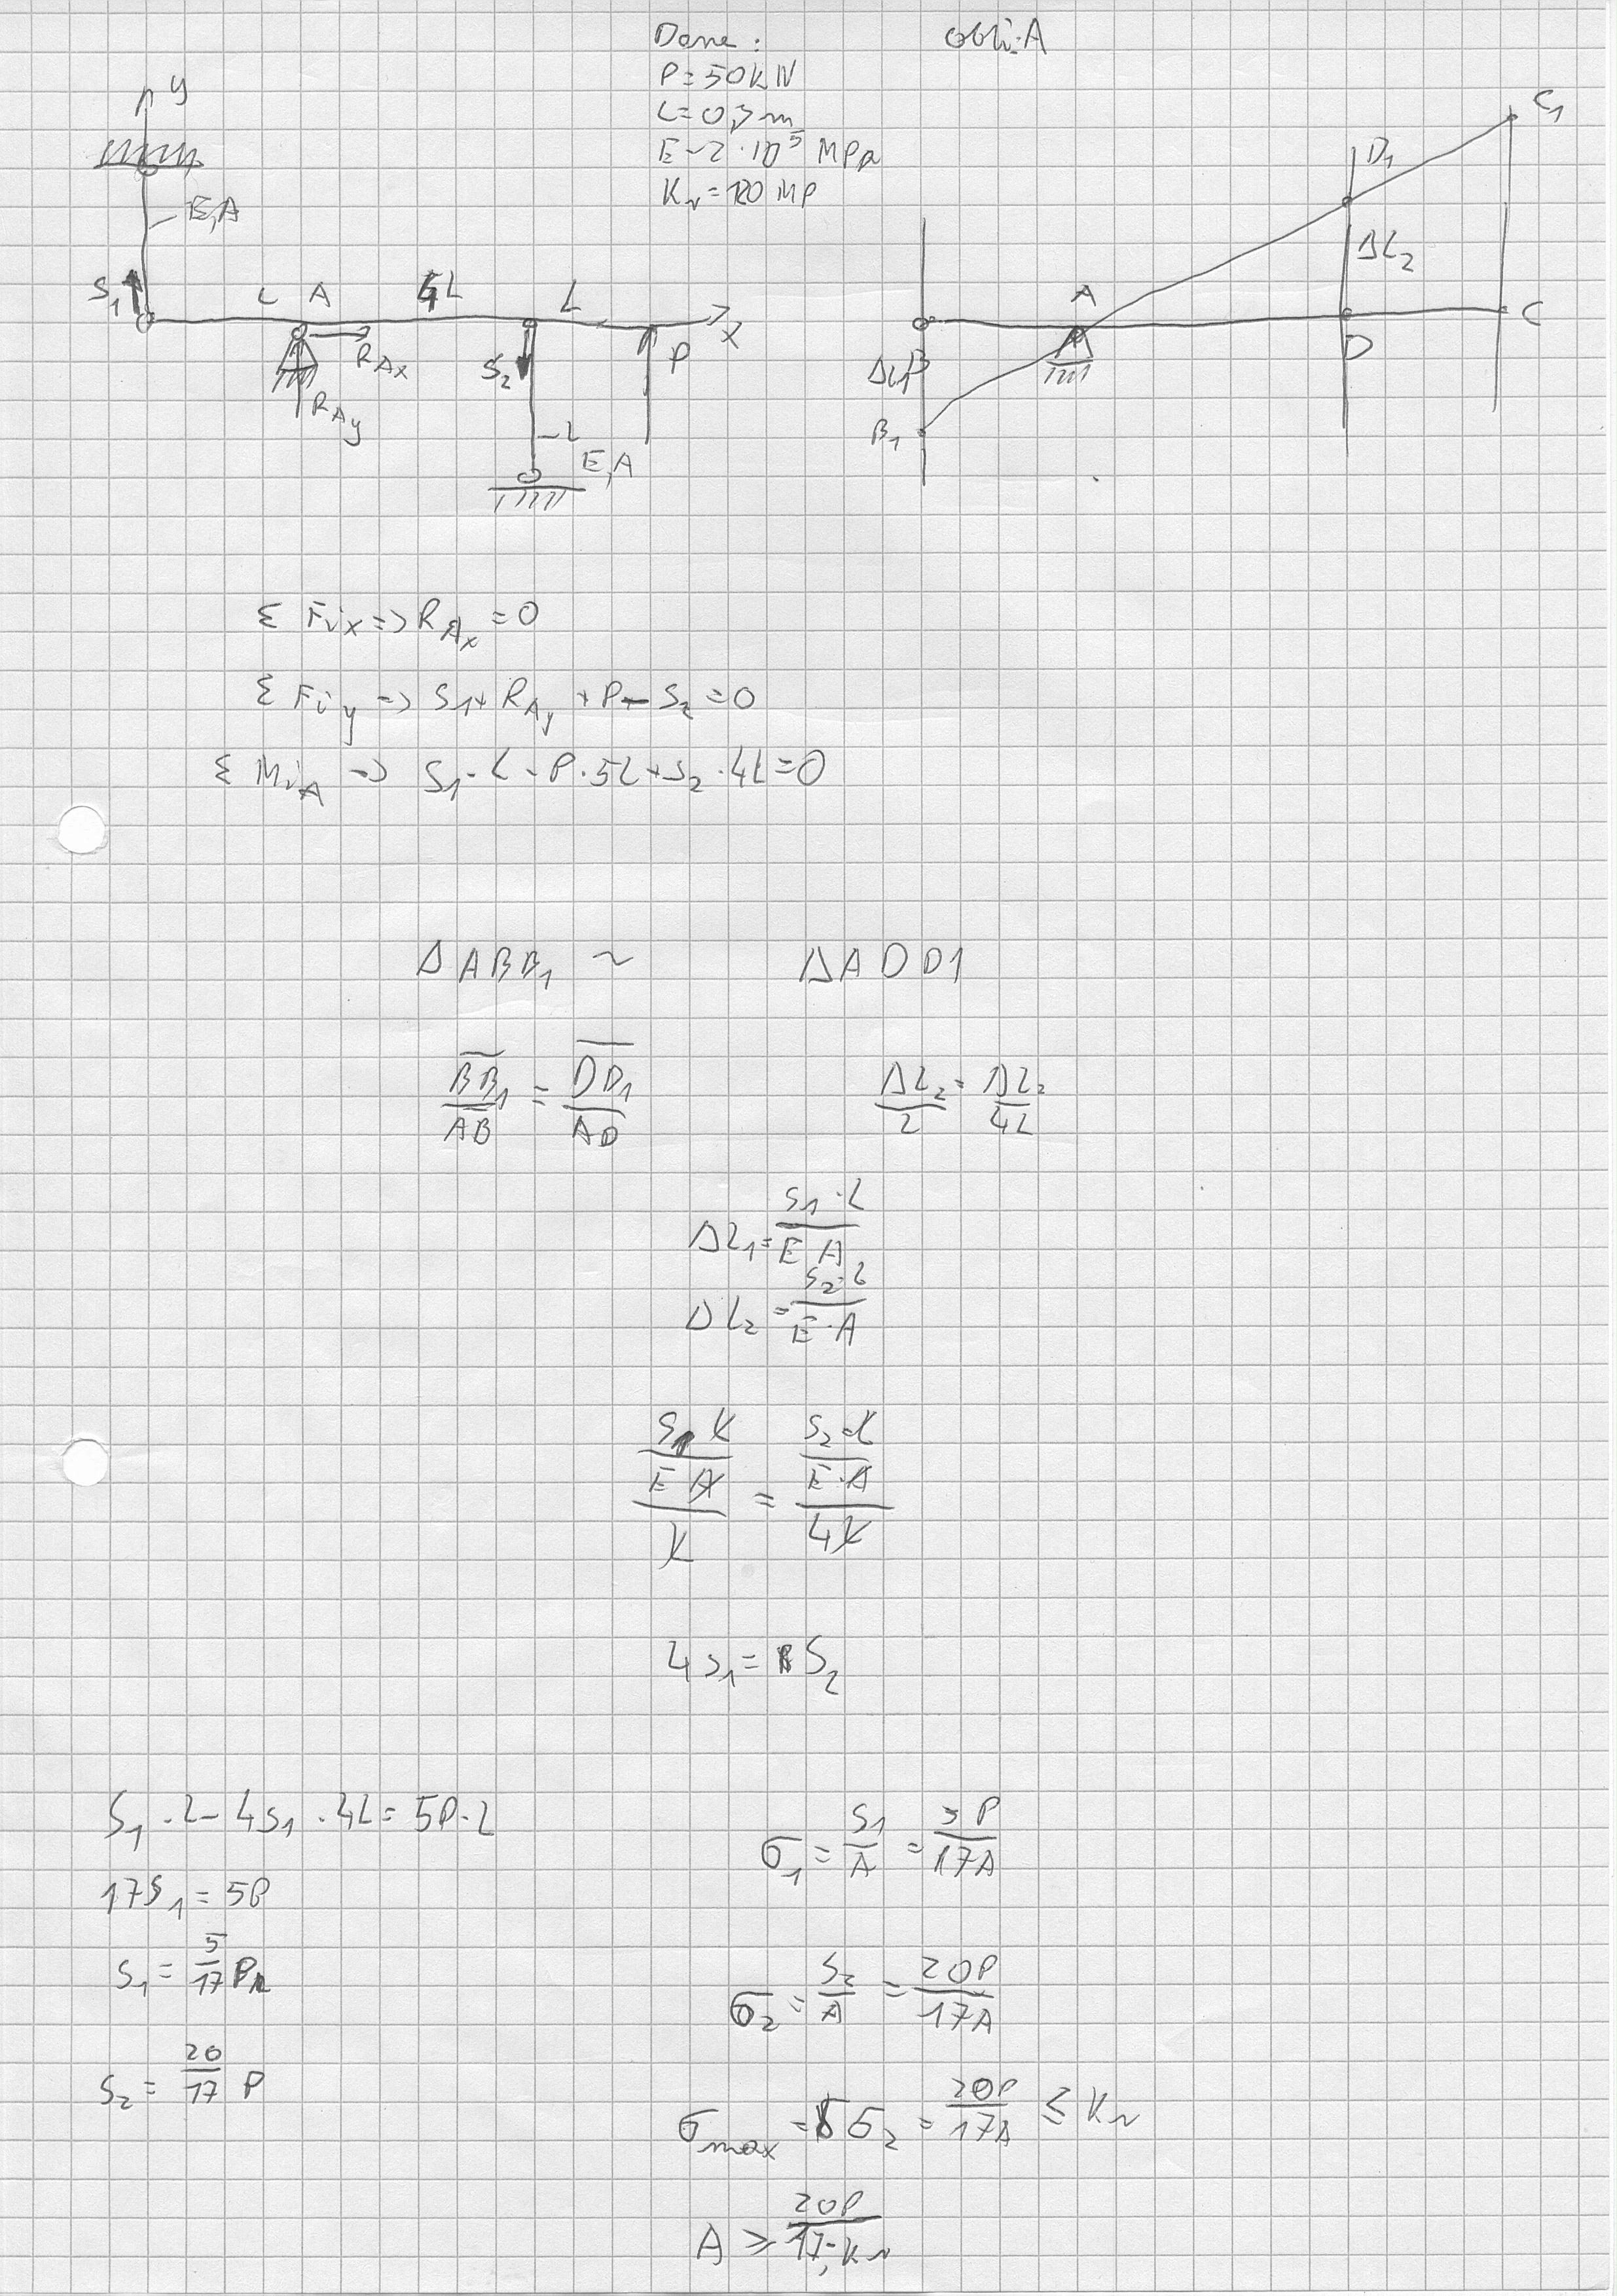 Dane : obli. A
P = 50kN
L = 0,3 m
E - 2 · 10⁵ MPa
Kr = 120 MP
y
E, A
S₁
L A 4L L
x
R_Ax
S₂
P
R_Ay
L
E, A
C₁
D₁
ΔL₂
A
C
D
B₁
Σ Fix => R_Ax = 0
Σ Fiy => S₁ + R_Ay + P - S₂ = 0
Σ MiA -> S₁ · L - P · 5L + S₂ · 4L = 0
Δ ABB₁ ~ Δ ADD1
BB₁/AB = DD₁/AD ΔL₂/L = ΔL₂/4L
ΔL₁ = S₁ · L / E A
ΔL₂ = S₂ · L / E · A
S₁ L / E A / L = S₂ · L / E · A / 4L
4S₁ = S₂
S₁ · L - 4S₁ · 4L = 5P · L
17S₁ = 5P
S₁ = 5/17 P
S₂ = 20/17 P
σ₁ = S₁/A = 5P/17A
σ₂ = S₂/A = 20P/17A
σmax = σ₂ = 20P/17A ≤ Kr
A ≥ 20P/17·Kr